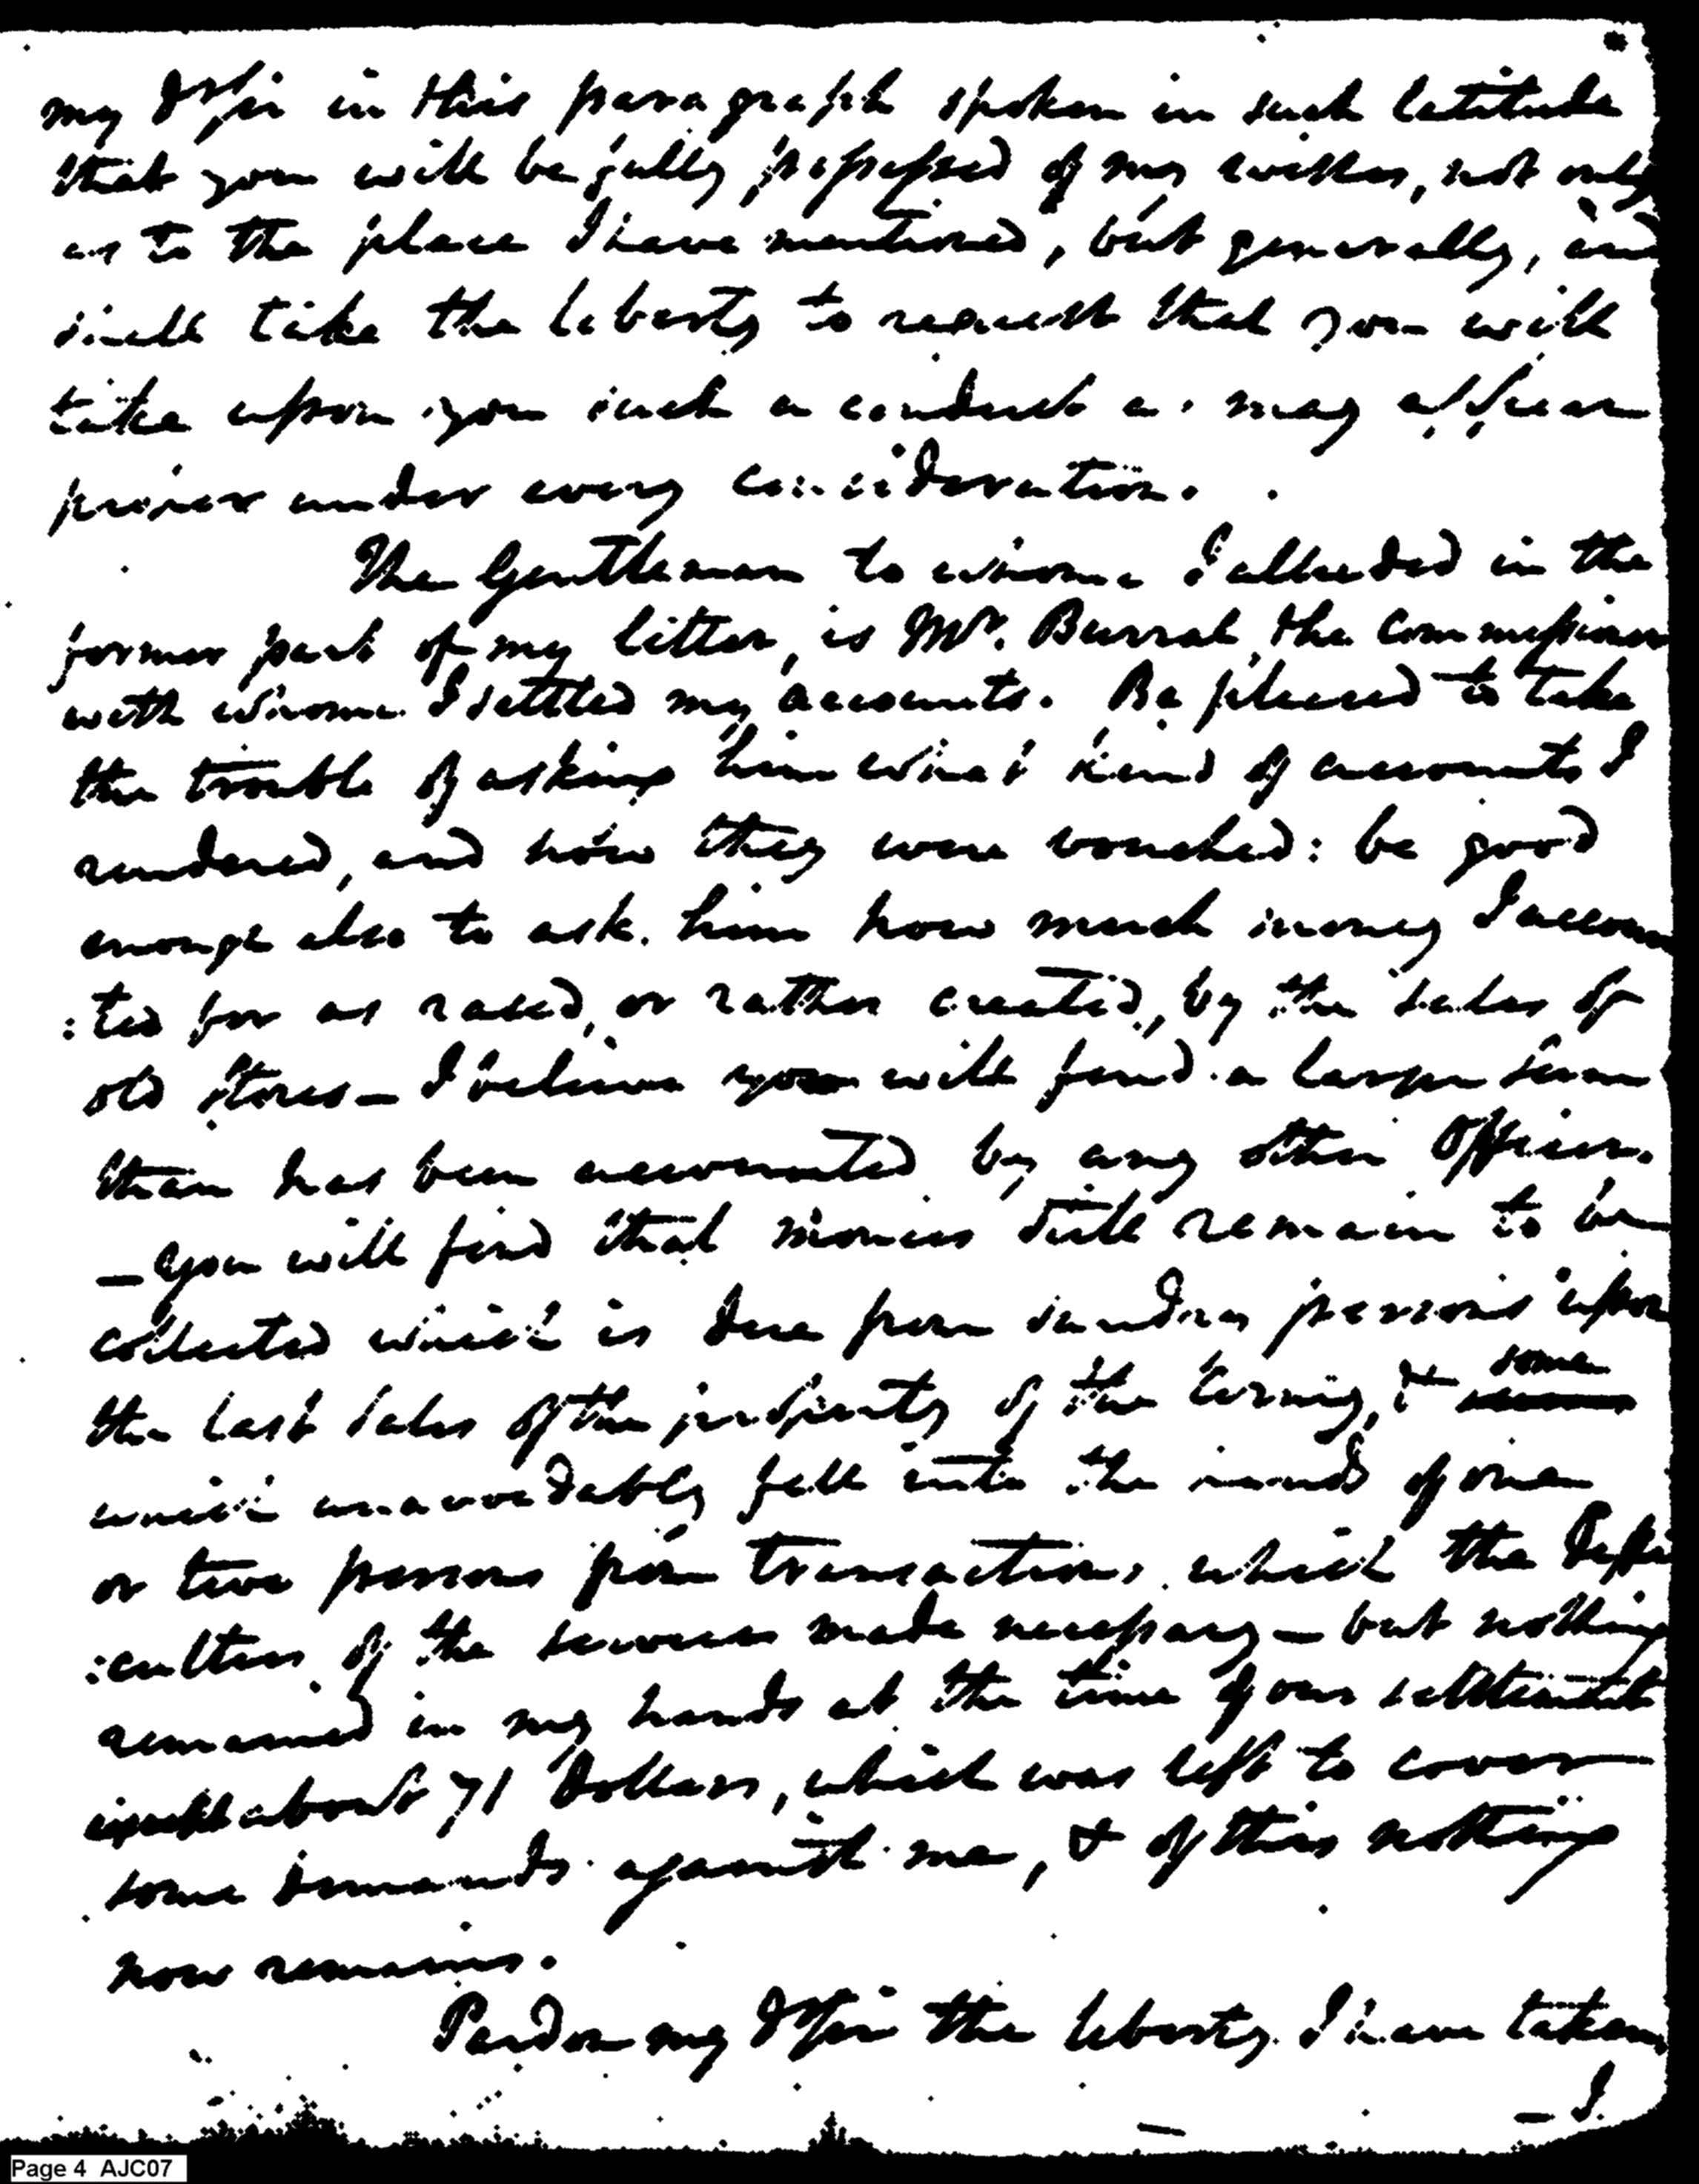 my Dr Sir in this paragraph spoken in such latitude
that you will be fully possessed of my wishes, not only
as to the place I have mentioned, but generally, and
shall take the liberty to request that you will
take upon you such a conduct as may appear
proper under every consideration.
The Gentleman to whome I alluded in the
former part of my litter, is Mr. Burral, the Commessioner
with whome I settled my accounts. Be pleased to take
the trouble of asking him what kind of accounts I
rendered, and how they were vouched: be good
enough also to ask him how much money I accoun
:ted for as rased, or rather created, by the sales of
old Stores — I believe you will find a larger sum
than has been accounted by any other Officer.
— you will find that monies still remain to be
collected which is due from sundry persons upon
the last sales of the property of the Army, & some
which unavoidably fell into the hands of one
or two persons from transactions which the Diffi
:culties of the services made necessary — but nothing
remained in my hands at the time of our settlement
except about 71 Dollars, which was left to cover
some demands against me, & of this nothing
now remains.
Pardon my Dr Sir the liberty I have taken
— I.
Page 4 AJC07